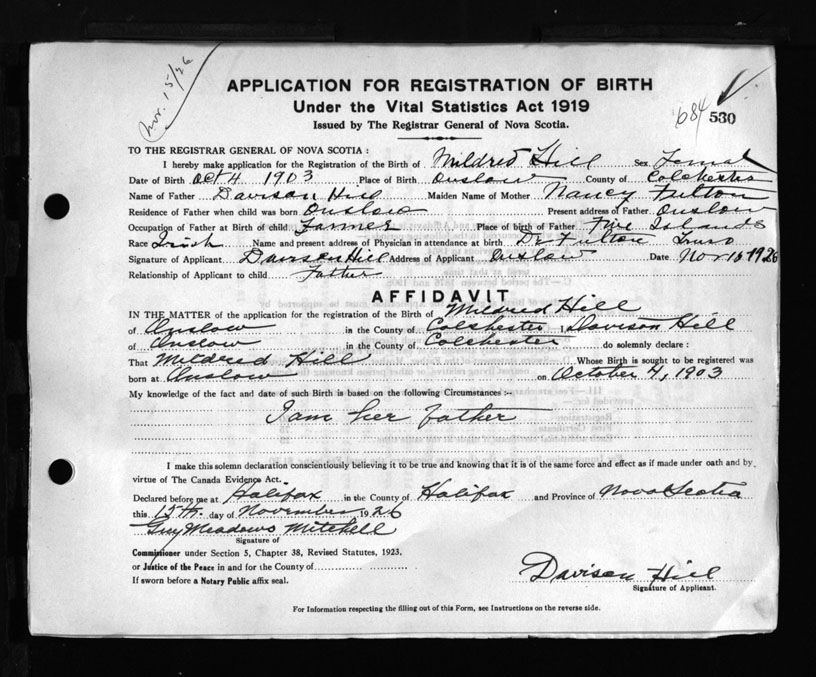 Nov. 15/26
APPLICATION FOR REGISTRATION OF BIRTH
Under the Vital Statistics Act 1919
Issued by The Registrar General of Nova Scotia.
684
530
TO THE REGISTRAR GENERAL OF NOVA SCOTIA :
I hereby make application for the Registration of the Birth of Mildred Hill Sex Female
Date of Birth Oct 4 1903 Place of Birth Onslow County of Colchester
Name of Father Davison Hill Maiden Name of Mother Nancy Fulton
Residence of Father when child was born Onslow Present address of Father Onslow
Occupation of Father at Birth of child Farmer Place of birth of Father Five Islands
Race Irish Name and present address of Physician in attendance at birth Dr Fulton Truro
Signature of Applicant Davison Hill Address of Applicant Onslow Date Nov 15 1926
Relationship of Applicant to child Father
AFFIDAVIT
IN THE MATTER of the application for the registration of the Birth of Mildred Hill
of Onslow in the County of Colchester I Davison Hill
of Onslow in the County of Colchester do solemnly declare :
That Mildred Hill Whose Birth is sought to be registered was
born at Onslow on October 4, 1903
My knowledge of the fact and date of such Birth is based on the following Circumstances :-
I am her father
I make this solemn declaration conscientiously believing it to be true and knowing that it is of the same force and effect as if made under oath and by
virtue of The Canada Evidence Act.
Declared before me at Halifax in the County of Halifax and Province of Nova Scotia
this 15th. day of November 1926
Guy Meadows Mitchell
Signature of
Commissioner under Section 5, Chapter 38, Revised Statutes, 1923.
or Justice of the Peace in and for the County of
If sworn before a Notary Public affix seal.
Davison Hill
Signature of Applicant.
For Information respecting the filling out of this Form, see Instructions on the reverse side.